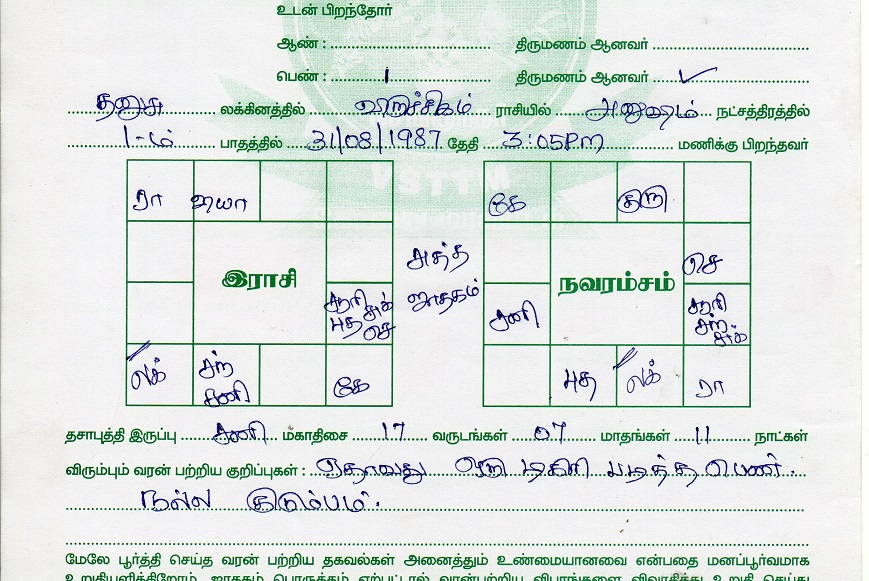 உடன் பிறந்தோர்
ஆண் : .......... திருமணம் ஆனவர் ..........
பெண் : 1 திருமணம் ஆனவர் ✓
தனுசு லக்கினத்தில் விருச்சிகம் ராசியில் அனுஷம் நட்சத்திரத்தில்
1-ம் பாதத்தில் 31/08/1987 தேதி 3:05Pm மணிக்கு பிறந்தவர்
ரா வியா
கே குரு
இராசி
அசுத்த ஜாதகம்
நவாம்சம்
செ
சூரி சுக் புத செ
சனி
சூரி சந் சுக்
லக்
சந் சனி
கே
புத
லக்
ரா
தசாபுத்தி இருப்பு சனி மகாதிசை 17 வருடங்கள் 07 மாதங்கள் 11 நாட்கள்
விரும்பும் வரன் பற்றிய குறிப்புகள் : ஏதாவது ஒரு டிகிரி படித்த பெண்.
நல்ல குடும்பம்.
மேலே பூர்த்தி செய்த வரன் பற்றிய தகவல்கள் அனைத்தும் உண்மையானவை என்பதை மனப்பூர்வமாக
உறுதியளிக்கிறோம். ஜாதகம் பொருத்தம் ஏற்பட்டால் வரன்பற்றிய விபரங்களை